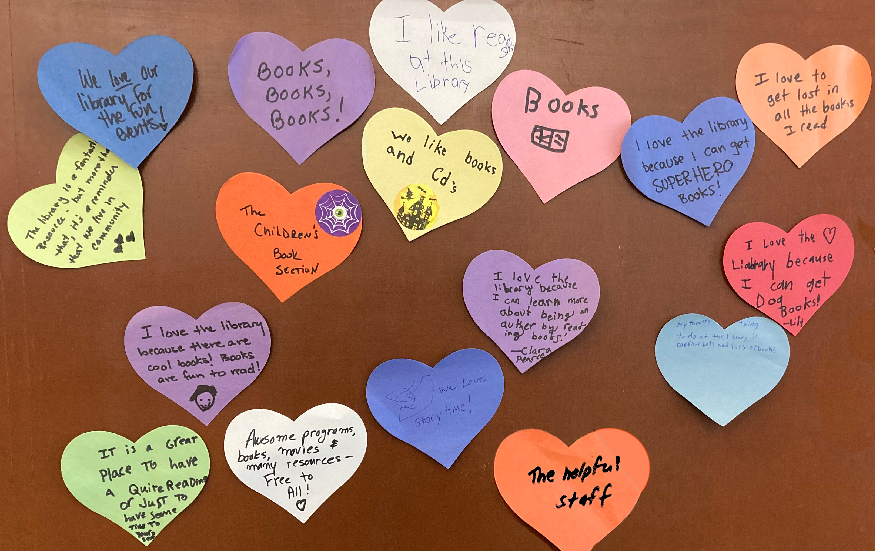 We love our
library for
the fun
events!
BOOKS,
BOOKS,
BOOKS!
I like reading
at this
Library
Books
I love to
get lost in
all the books
I read
The library is a fantastic
resource - but more than
that, it's a reminder
that we live in
community
The
Children's
Book
Section
We like books
and Cd's
I love the library
because I can get
SUPERHERO
Books!
I Love the ♡
Liabrary because
I can get
Dog
Books!
-Lily
I love the library,
because there are
cool books! Books
are fun to read!
I love the
library because
I can learn more
about being an
auther by read-
ing books!
-Clara
We Love
storytime!
to do at the library is
and lots of books
IT is a Great
Place To have
A Quite Reading
or Just To
have some
Time To
Awsome programs,
books, movies &
many resources -
Free to
All!
♡
The helpful
staff